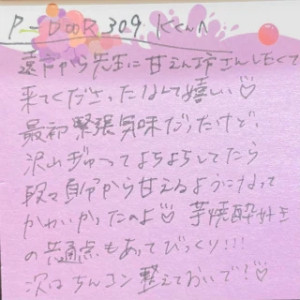 P-DOOR 309 Kくん
遠方から先生に甘えん坊さんしたくて
来てくださったなんて嬉しい♡
最初緊張気味だったけど、
沢山ぎゅってよちよちしてたら
段々自分から甘えるようになって
かわいかったのよ♡ 芋焼酎好き
の共通点もあってびっくり!!!
次はちんコン整えておいで!♡